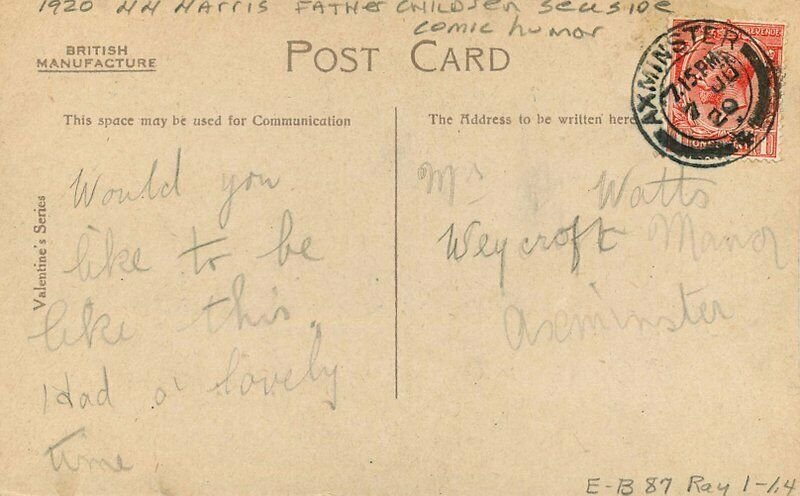 1920 HH HARRIS FATHER CHILDREN SEASIDE
COMIC HUMOR
BRITISH
MANUFACTURE
POST CARD
AXMINSTER
7.15 PM
This space may be used for Communication
The Address to be written here
Valentine's Series
Would you
like to be
like this.
Had a lovely
time
Mrs Watts
Weycroft Manor
Axminster
E-B 87 Ray 1-/.4